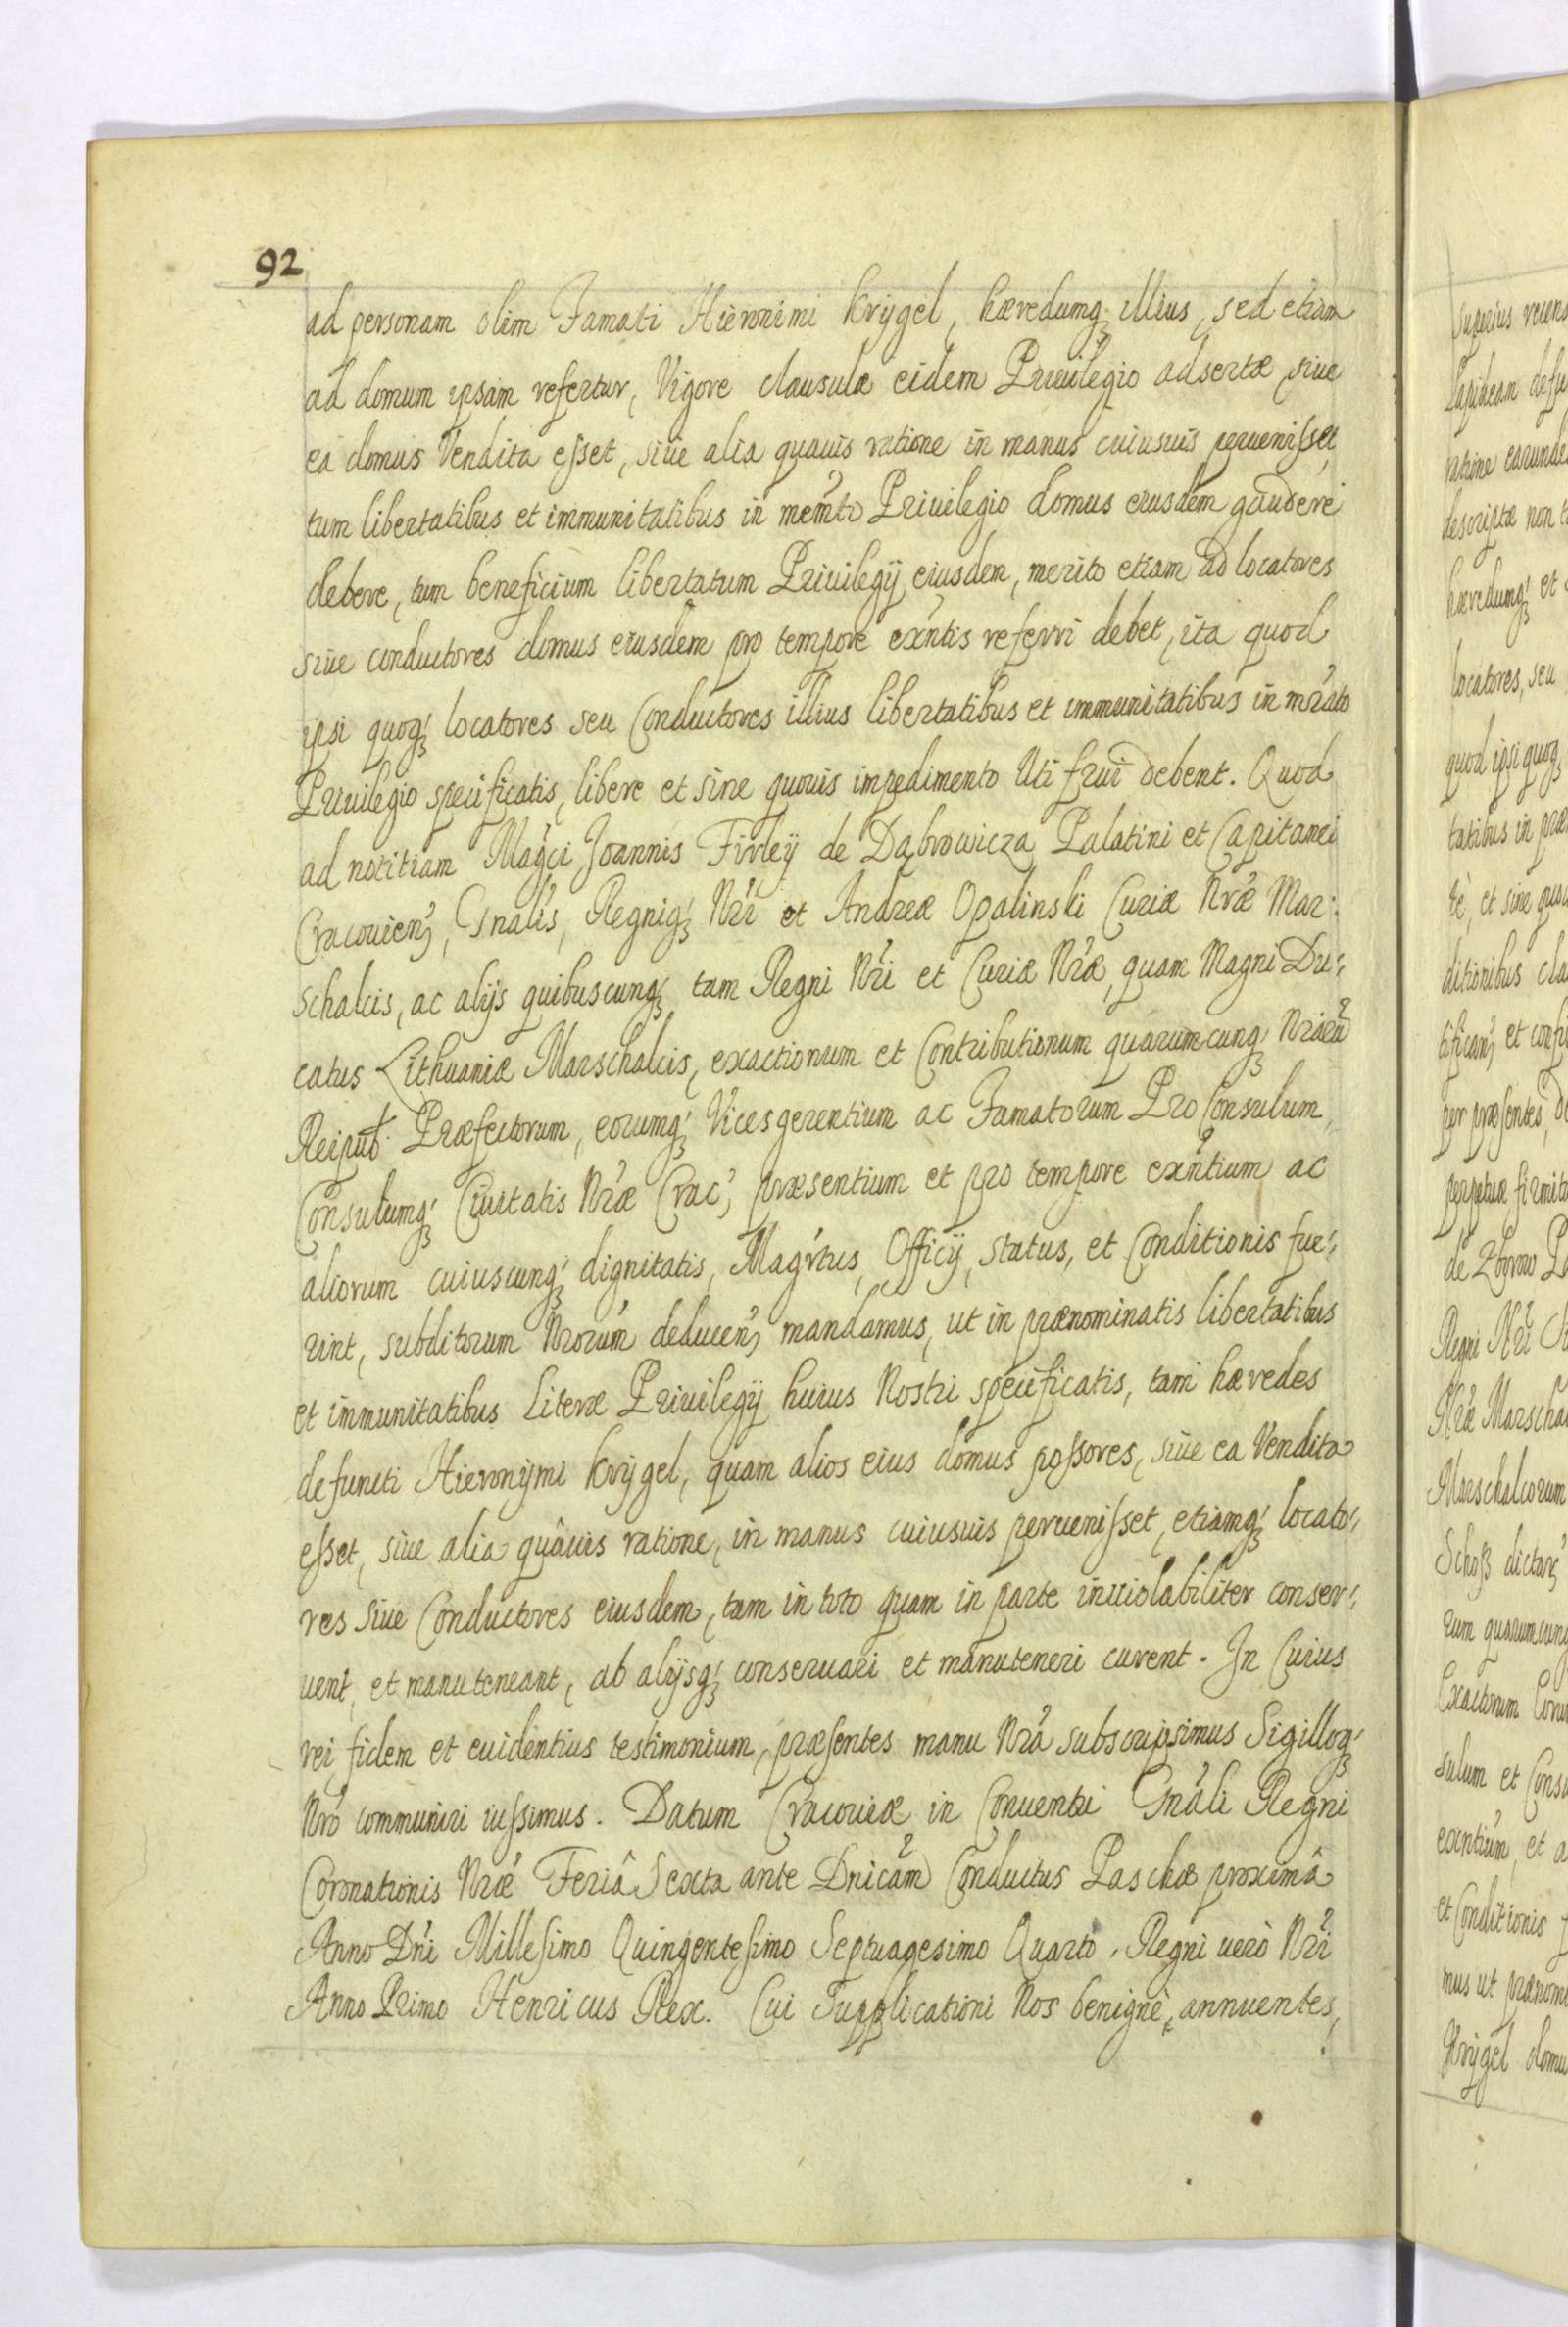 92
ad personam olim Famati Hieronimi Krÿgel, hæredumq; illius, sed etiam
ad domum ipsam refertur, Vigore clausulæ eidem Priuilegio adsertæ, siue
ea domus Vendita esset, siue alia quauis ratione in manus cuiusuis peruenisset
tum libertatibus et immunitatibus in memto Priuilegio domus eiusdem gaudere
debere, tum beneficium libertatum Priuilegij eiusdem, merito etiam ad locatores
siue conductores domus eiusdem pro tempore exntis referri debet, ita quod
ipsi quoq; locatores seu Conductores illius libertatibus et immunitatibus in mrato
Priuilegio specificatis, libere et sine quouis impedimento Uti frui debent. Quod
ad notitiam Magci Joannis Firleÿ de Dąbrowicza Palatini et Capitanei
Cracouien, Gnalis, Regniq; Nri et Andreæ Opalinski Curiæ Nræ Mar:
schalcis, ac alijs quibuscunq; tam Regni Nri et Curiæ Nræ, quam Magni Du:
catus Lithuaniæ Marschalcis, exactionum et Contributionum quarumcunq; Nrarū
Reipub. Præfectorum, eorumq; Vicesgerentium ac Famatorum Pro Consulum,
Consulumq; Ciuitatis Nræ Crac, præsentium et pro tempore exntium ac
aliorum cuiuscunq; dignitatis, Magrtus, Officij, status, et Conditionis fue:
rint, subditorum Nrorum deducen, mandamus, ut in prænominatis libertatibus
et immunitatibus Literæ Priuilegij huius Nostri specificatis, tam hæredes
defuncti Hieronÿmi Krÿgel, quam alios eius domus possores, siue ea Vendita
esset, siue alia quâuis ratione, in manus cuiusuis peruenisset, etiamq; locato:
res siue Conductores eiusdem, tam in toto quam in parte inuiolabiliter conser:
uent, et manuteneant, ab alijsq; conseruari et manuteneri curent. In Cuius
rei fidem et euidentius testimonium, præsentes manu Nra subscripsimus Sigilloq;
Nro communiri iussimus. Datum Cracouiæ in Conuentu Gnali Regni
Coronationis Nræ Feriâ Sexta ante Dnicam Conductus Paschæ proximâ
Anno Dni Millesimo Quingentesimo Septuagesimo Quarto. Regni uerò Nri
Anno Primo Henricus Rex. Cui Supplicationi Nos benignè annuentes,
Superius recens
Lapideam defu
ratione earunde
descriptæ non t
hæredumq; et
locatores, seu
quod ipsi quoq;
tatibus in præ
tè, et sine quo
ditionibus cla
tifican, et confir
per præsentes, de
perpetuæ firmita
de Zborow Pa
Regni Nri
Nræ Marscha
Marschalcorum
Schoss dictar
rum quarumcunq
Exactorum Eoru
sulum et Consu
exntium, et a
et Conditionis f
mus ut prænomi
Krÿgel domu